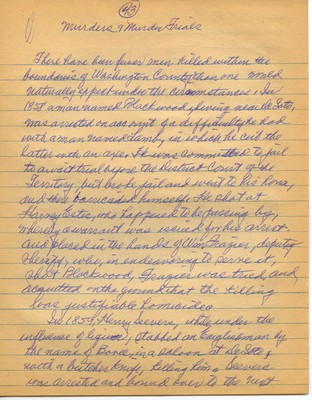 93
Murders & Murder Trials
There have been fewer men killed within the
boundaries of Washington County than one would
naturally expect under the circumstances. In
1857 a man named Blackwood, living near De Soto,
was arrested on account of a difficulty he had
with a man named Lamb, in which he cut the
latter with an axe. He was committed to jail
to await trial before the District Court of the
Territory, but broke jail and went to his home,
and there barricaded himself. He shot at
Harvey Estes, who happened to be passing by,
whereby a warrant was issued for his arrest
and placed in the hands of Wm Frazier, deputy
Sheriff, who, in endeavoring to serve it,
shot Blackwood, Frazier was tried and
acquitted on the ground that the killing
was justifiable homicide.
In 1859, Henry Seevers, while under the
influence of liquor, stabbed an Englishman by
the name of Bover in a saloon at De Soto
with a butcher knife, killing him. Seevers
was arrested and bound over to the next